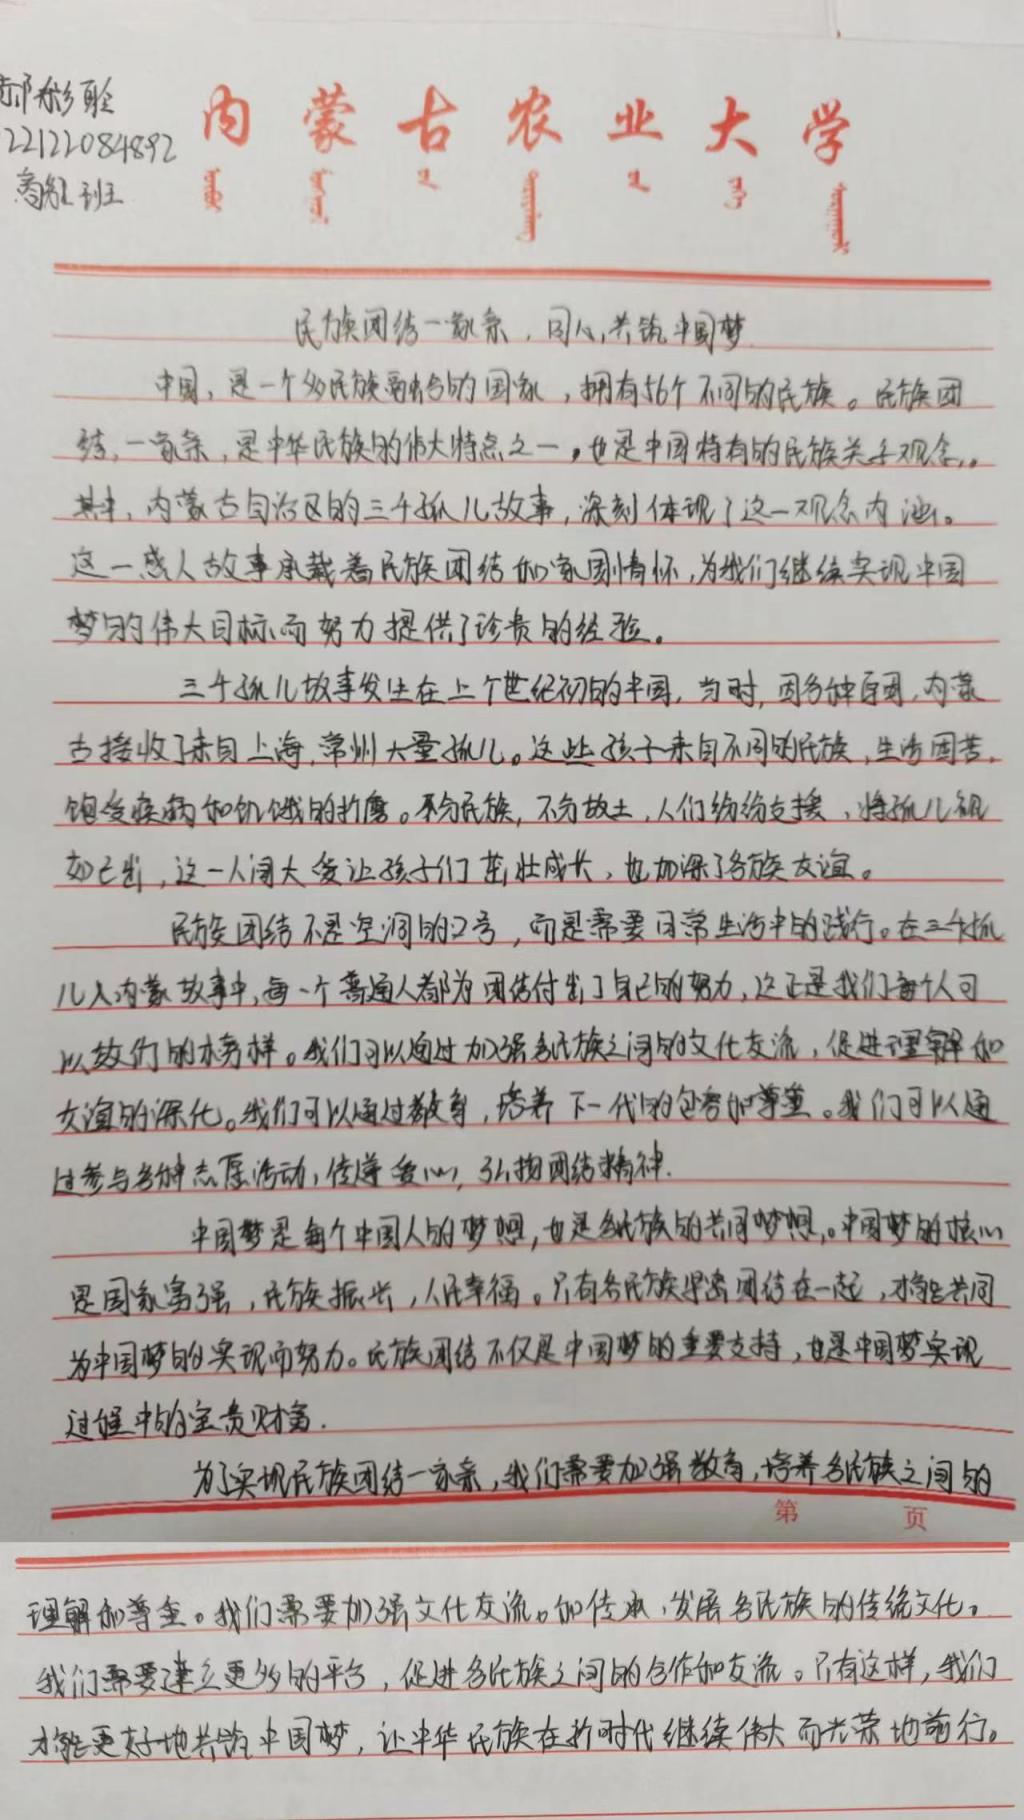 郝彩
22122084892
班
内蒙古农业大学
民族团结一家亲，同心共筑中国梦
中国，是一个多民族融合的国家，拥有56个不同的民族。民族团
结，一家亲，是中华民族的伟大特点之一，也是中国特有的民族关系观念。
其中，内蒙古自治区的三千孤儿故事，深刻体现了这一观念内涵。
这一感人故事承载着民族团结和家国情怀，为我们继续实现中国
梦的伟大目标而努力提供了珍贵的经验。
三千孤儿故事发生在上个世纪初的中国，当时，因多种原因，内蒙
古接收了来自上海，常州大量孤儿。这些孩子来自不同的民族，生活困苦，
饱受疾病和饥饿的折磨。不分民族，不分故土，人们纷纷支援，将孤儿视
如己出，这一人间大爱让孩子们茁壮成长，也加深了各族友谊。
民族团结不是空洞的口号，而是需要日常生活中的践行。在三千孤
儿入内蒙故事中，每一个普通人都为团结付出了自己的努力，这正是我们每个人可
以效仿的榜样。我们可以通过加强各民族之间的文化交流，促进理解和
友谊的深化。我们可以通过教育，培养下一代的包容和尊重。我们可以通
过参与各种志愿活动，传递爱心，弘扬团结精神.
中国梦是每个中国人的梦想，也是各民族的共同梦想。中国梦的核心
是国家富强，民族振兴，人民幸福。只有各民族紧密团结在一起，才能共同
为中国梦的实现而努力。民族团结不仅是中国梦的重要支持，也是中国梦实现
过程中的宝贵财富.
为了实现民族团结一家亲，我们需要加强教育，培养各民族之间的
第 页
理解和尊重。我们需要加强文化交流。和传承，发展各民族的传统文化。
我们需要建立更多的平台，促进各民族之间的合作和交流。只有这样，我们
才能更好地共筑中国梦，让中华民族在新时代继续伟大而光荣地前行。